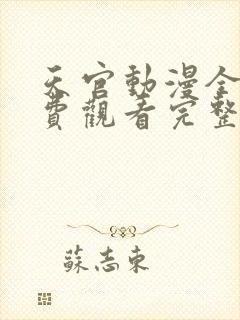 天官動漫全
費觀看完整
蘇志東